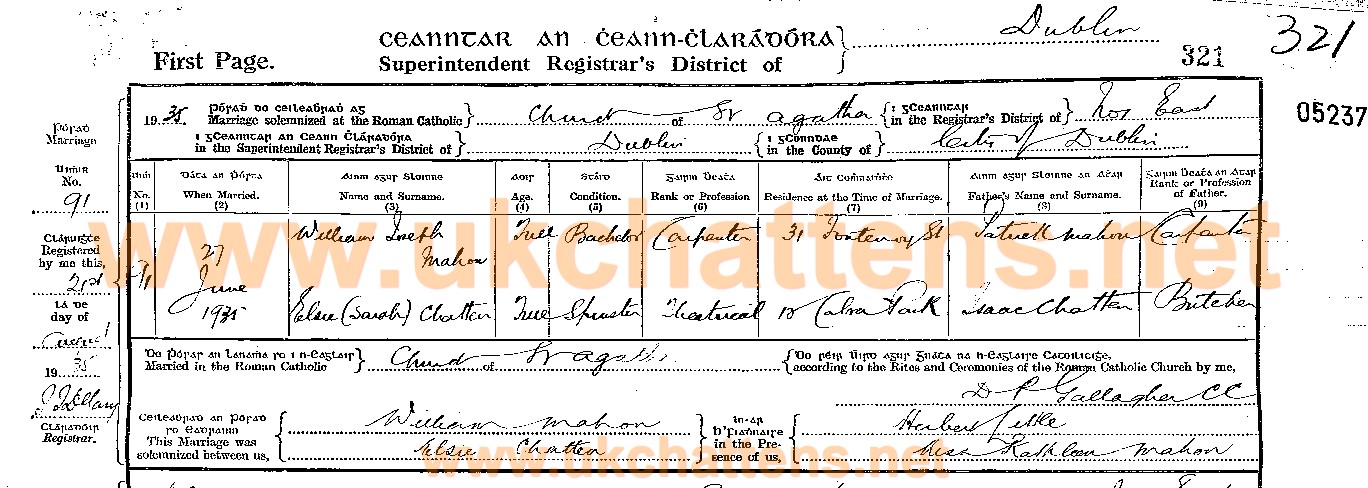 First Page.
CEANNTAR AN ĊEANN-ĊLÁRAḊÓRA
Superintendent Registrar's District of
Dublin
321
321
05237
1935. Pósaḋ do ceileaḃraḋ ag
Marriage solemnized at the Roman Catholic
Church of St Agatha
i gCeanntar
in the Registrar's District of
Nor East
i gCeanntar an Ceann Ċláraḋóra
in the Superintendent Registrar's District of
Dublin
i gConndae
in the County of
City of Dublin
Pósaḋ
Marriage
Uimir
No.
91
Cláruiġṫe
Registered
by me this,
21st
Lá de
day of
August
1935
Cláraḋóir
Registrar.
Uimir
No.
(1)
Dáta an Pósta
When Married.
(2)
Ainm agus Sloinne
Name and Surname.
(3)
Aois
Age.
(4)
Stáid
Condition.
(5)
Gairm Ḃeaṫa
Rank or Profession
(6)
Áit Coṁnuiḋṫe
Residence at the Time of Marriage.
(7)
Ainm agus Sloinne an Aṫar
Father's Name and Surname.
(8)
Gairm Ḃeaṫa an Aṫar
Rank or Profession
of Father.
(9)
91
27
June
1935
William Joseph
Mahon
Full
Bachelor
Carpenter
31 Fontenoy St
Patrick Mahon
Carpenter
Elsie (Sarah) Chatten
Full
Spinster
Theatrical
18 Cabra Park
Isaac Chatten
Butcher
www.ukchattens.net
Do Pósaḋ an Lánaṁa so i n-Eaglais
Married in the Roman Catholic
Church of St Agatha
Do réir Uird agus Gnáṫa na h-Eaglaise Catoilicighe,
according to the Rites and Ceremonies of the Roman Catholic Church by me,
D P Gallagher CC
Ceileaḃraḋ an Pósaḋ
so eadrainn
This Marriage was
solemnized between us,
William Mahon
Elsie Chatten
in-ár
ḃFiaḋnaise
in the Pre-
sence of us,
Herbert Little
Miss Kathleen Mahon
www.ukchattens.net